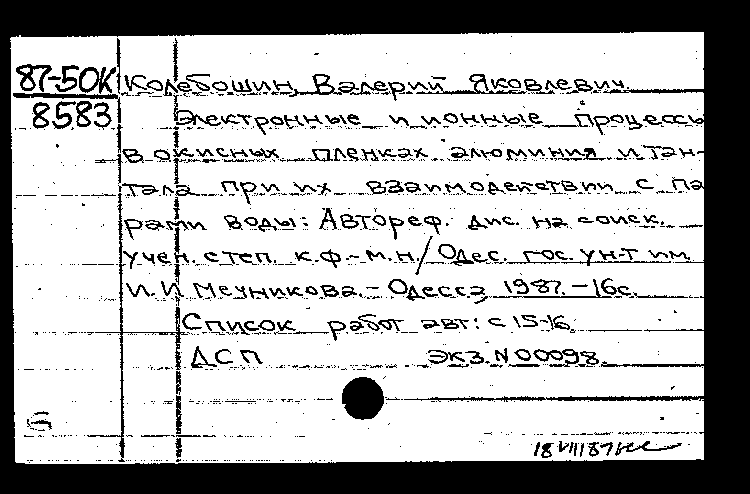 87-50К Колебошин, Валерий Яковлевич
8583 Электронные и ионные процессы
в окисных пленках алюминия и тан-
тала при их взаимодействии с па
рами воды: Автореф. дис. на соиск.
учен. степ. к.ф.-м.н./Одес. гос. ун-т им.
И.И Мечникова.- Одесса, 1987.-16с.
Список работ авт: с 15-16.
ДСП Экз. N 00098.
18 VIII 87